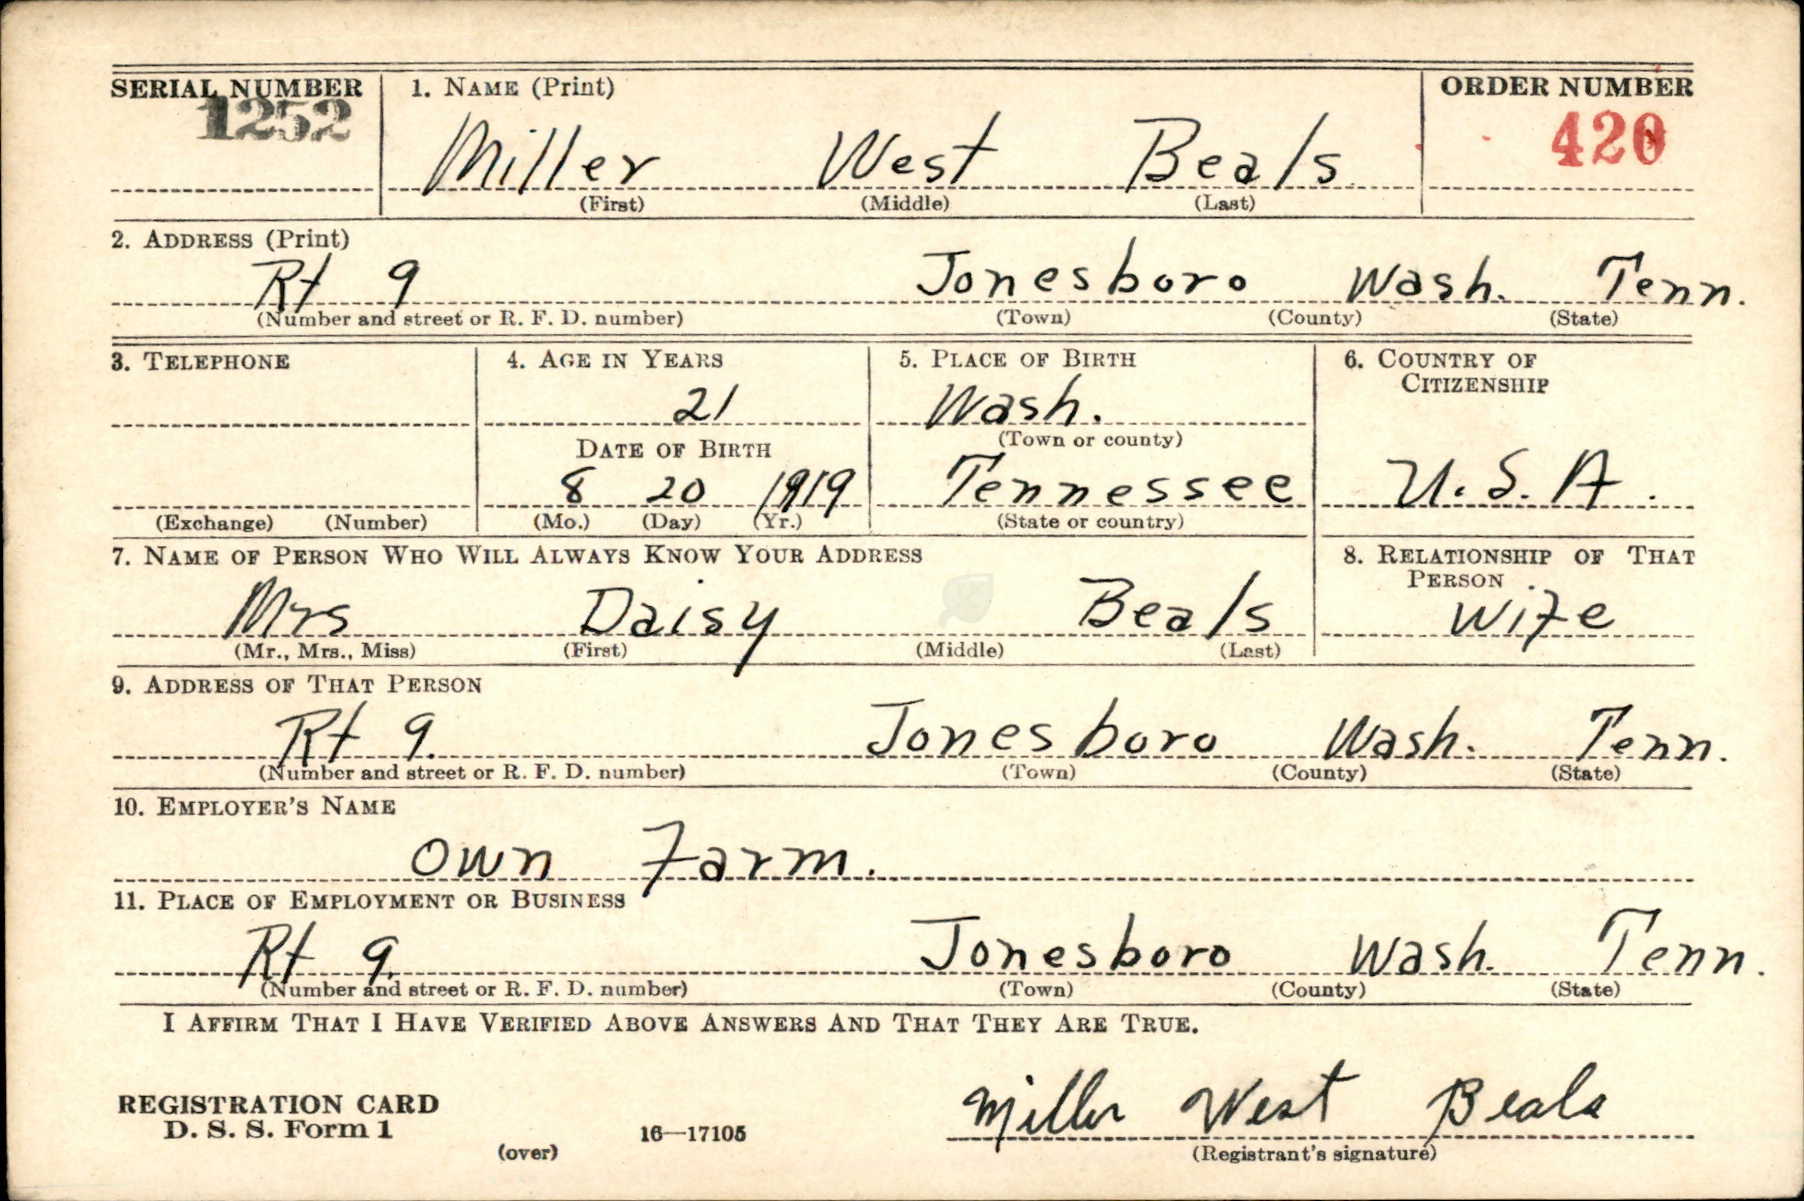 SERIAL NUMBER 1. NAME (Print) ORDER NUMBER
1252 Miller West Beals 420
(First) (Middle) (Last)
2. ADDRESS (Print)
Rt 9 Jonesboro Wash. Tenn.
(Number and street or R. F. D. number) (Town) (County) (State)
3. TELEPHONE 4. AGE IN YEARS 5. PLACE OF BIRTH 6. COUNTRY OF
CITIZENSHIP
21 Wash.
DATE OF BIRTH (Town or county)
8 20 1919 Tennessee U.S.A.
(Exchange) (Number) (Mo.) (Day) (Yr.) (State or country)
7. NAME OF PERSON WHO WILL ALWAYS KNOW YOUR ADDRESS 8. RELATIONSHIP OF THAT
PERSON
Mrs Daisy Beals Wife
(Mr., Mrs., Miss) (First) (Middle) (Last)
9. ADDRESS OF THAT PERSON
Rt 9. Jonesboro Wash. Tenn.
(Number and street or R. F. D. number) (Town) (County) (State)
10. EMPLOYER'S NAME
Own Farm.
11. PLACE OF EMPLOYMENT OR BUSINESS
Rt 9. Jonesboro Wash. Tenn.
(Number and street or R. F. D. number) (Town) (County) (State)
I AFFIRM THAT I HAVE VERIFIED ABOVE ANSWERS AND THAT THEY ARE TRUE.
REGISTRATION CARD Miller West Beals
D. S. S. Form 1
(over) 16—17105 (Registrant's signature)